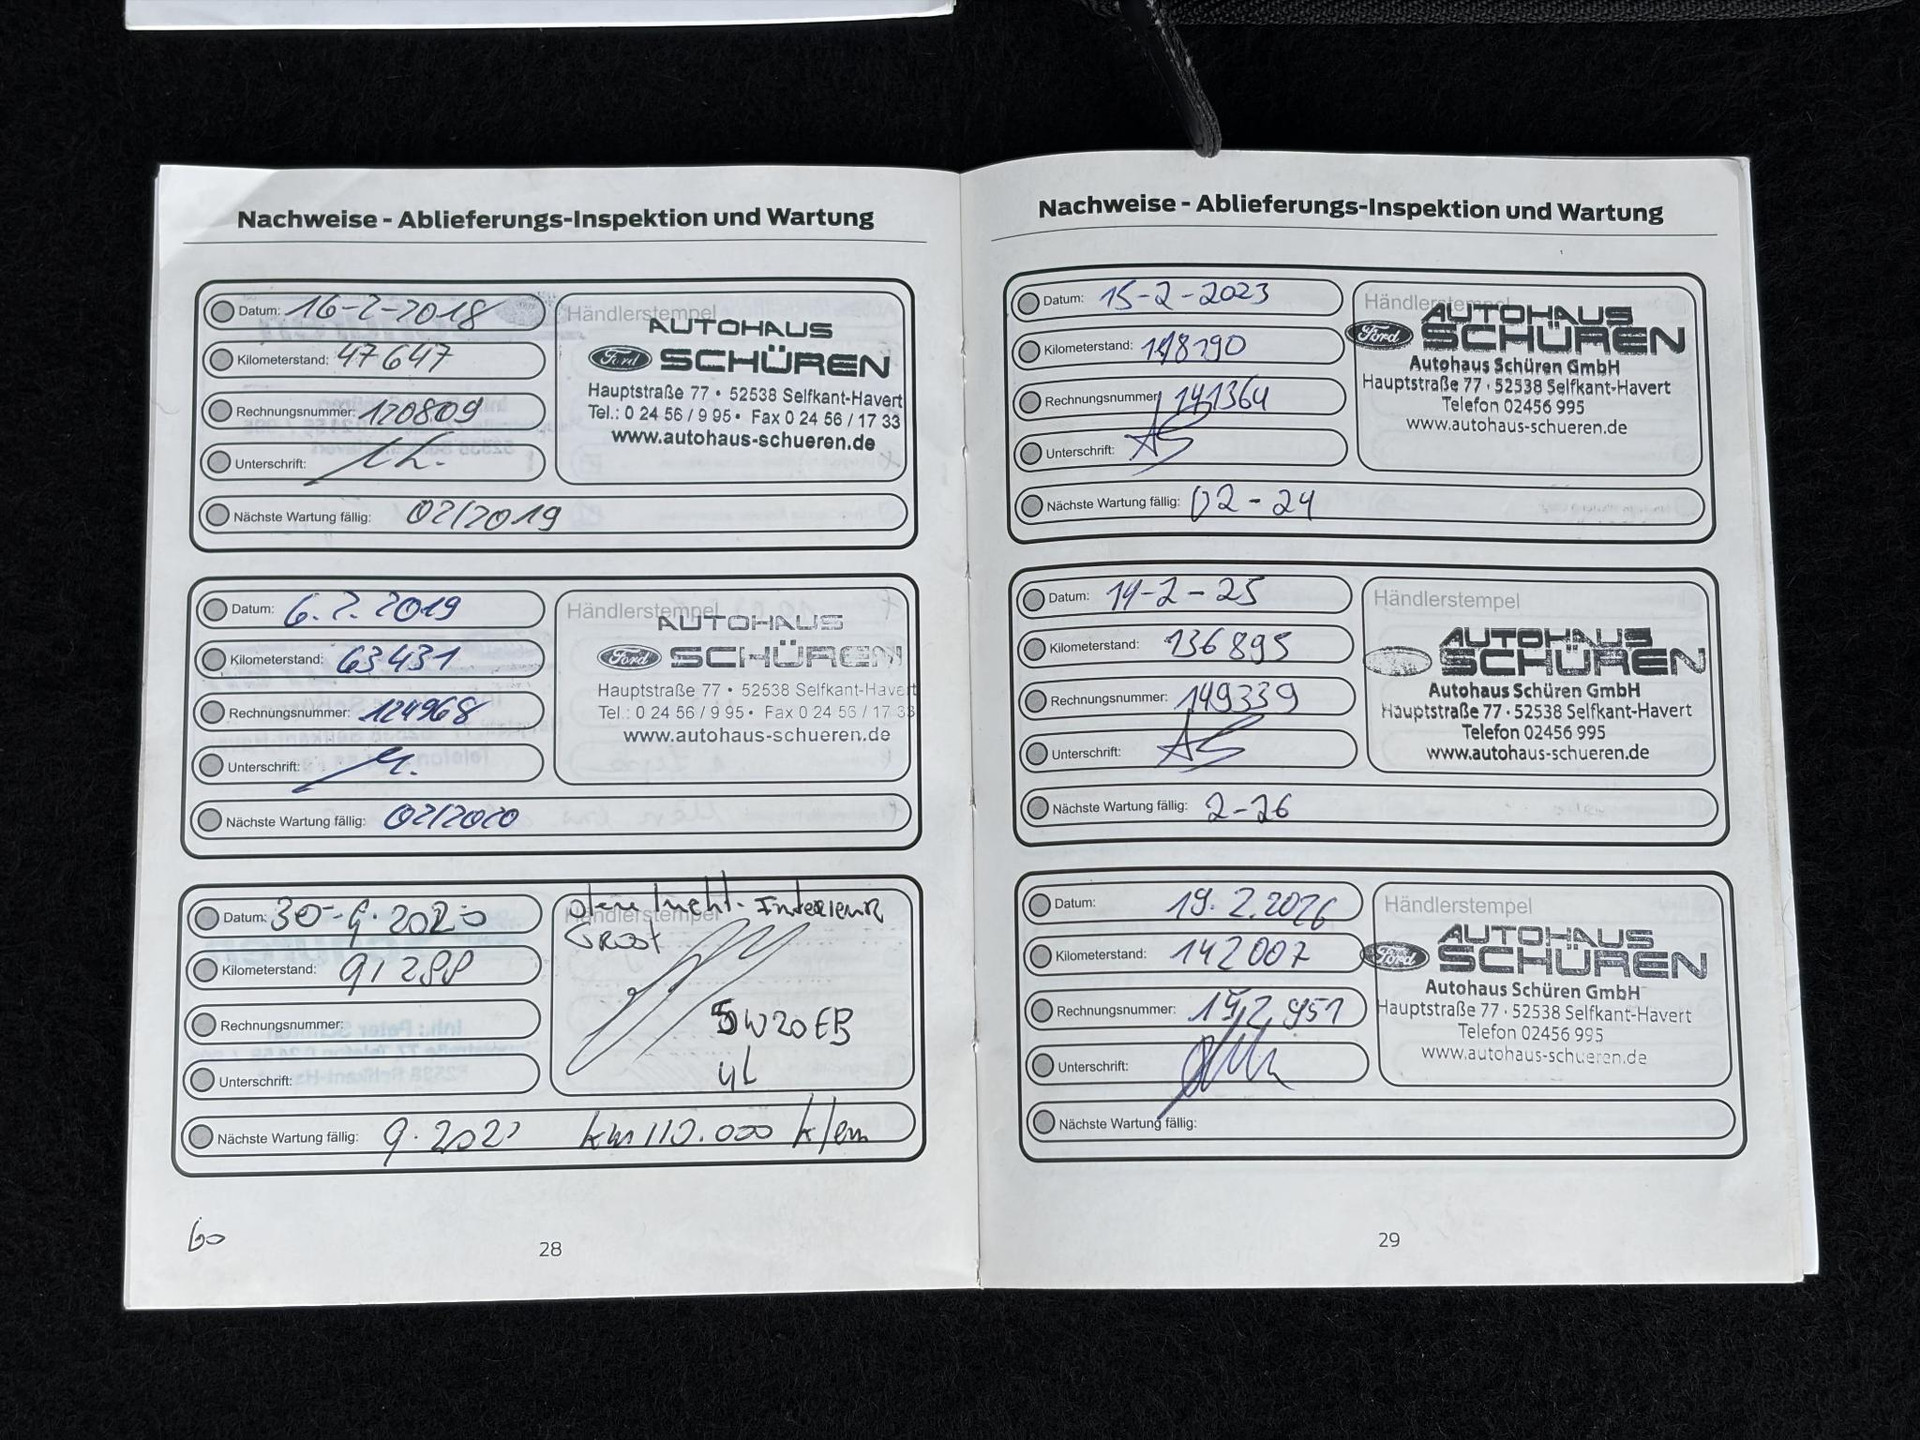 Nachweise - Ablieferungs-Inspektion und Wartung
Datum: 16-2-2018
Kilometerstand: 47647
Rechnungsnummer: 120809
Unterschrift:
Nächste Wartung fällig: 02/2019
Händlerstempel
AUTOHAUS
Ford SCHÜREN
Hauptstraße 77 • 52538 Selfkant-Havert
Tel.: 0 24 56 / 9 95 • Fax 0 24 56 / 17 33
www.autohaus-schueren.de
Datum: 6.2.2019
Kilometerstand: 63431
Rechnungsnummer: 124968
Unterschrift:
Nächste Wartung fällig: 02/2020
Händlerstempel
AUTOHAUS
Ford SCHÜREN
Hauptstraße 77 • 52538 Selfkant-Havert
Tel.: 0 24 56 / 9 95 • Fax 0 24 56 / 17 33
www.autohaus-schueren.de
Datum: 30-9-2020
Kilometerstand: 91288
Rechnungsnummer:
Unterschrift:
Händlerstempel
5W20EB
4L
Nächste Wartung fällig: 9.202 km 110.000
60
28
Nachweise - Ablieferungs-Inspektion und Wartung
Datum: 15-2-2023
Kilometerstand: 118790
Rechnungsnummer: 141364
Unterschrift: AS
Nächste Wartung fällig: 02-24
Händlerstempel
AUTOHAUS
Ford SCHÜREN
Autohaus Schüren GmbH
Hauptstraße 77 · 52538 Selfkant-Havert
Telefon 02456 995
www.autohaus-schueren.de
Datum: 14-2-25
Kilometerstand: 136895
Rechnungsnummer: 149339
Unterschrift: AS
Nächste Wartung fällig: 2-26
Händlerstempel
AUTOHAUS
SCHÜREN
Autohaus Schüren GmbH
Hauptstraße 77 · 52538 Selfkant-Havert
Telefon 02456 995
www.autohaus-schueren.de
Datum: 19.2.2026
Kilometerstand: 142007
Rechnungsnummer: 152951
Unterschrift:
Nächste Wartung fällig:
Händlerstempel
AUTOHAUS
Ford SCHÜREN
Autohaus Schüren GmbH
Hauptstraße 77 · 52538 Selfkant-Havert
Telefon 02456 995
www.autohaus-schueren.de
29